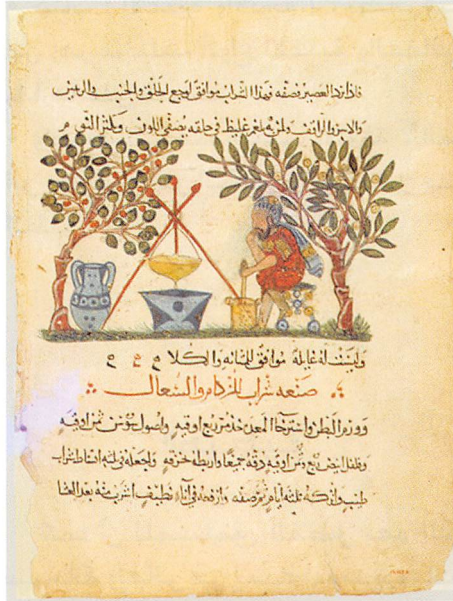 فاذا برد العصير فصفه فهذا الشراب موافق لوجع الحلق والجنب
ولمن به بلغم غليظ في حلقه يصفي اللون ويكثر النوم
وليست له غايلة موافق للمثانه والكلا
صنعه شراب للزكام والسعال
وورم البطن واسترخا المعده خذ مر ربع اوقيه واصول سوسن ثمن اوقيه
وفلفل ابيض ربع وثمن اوقيه دقه جميعا واربطه خرقه واجعله في اقساط شراب
طيب واتركه ثلثه ايام ثم صفه وارفعه في اناء نظيف اشرب منه بعد العشا